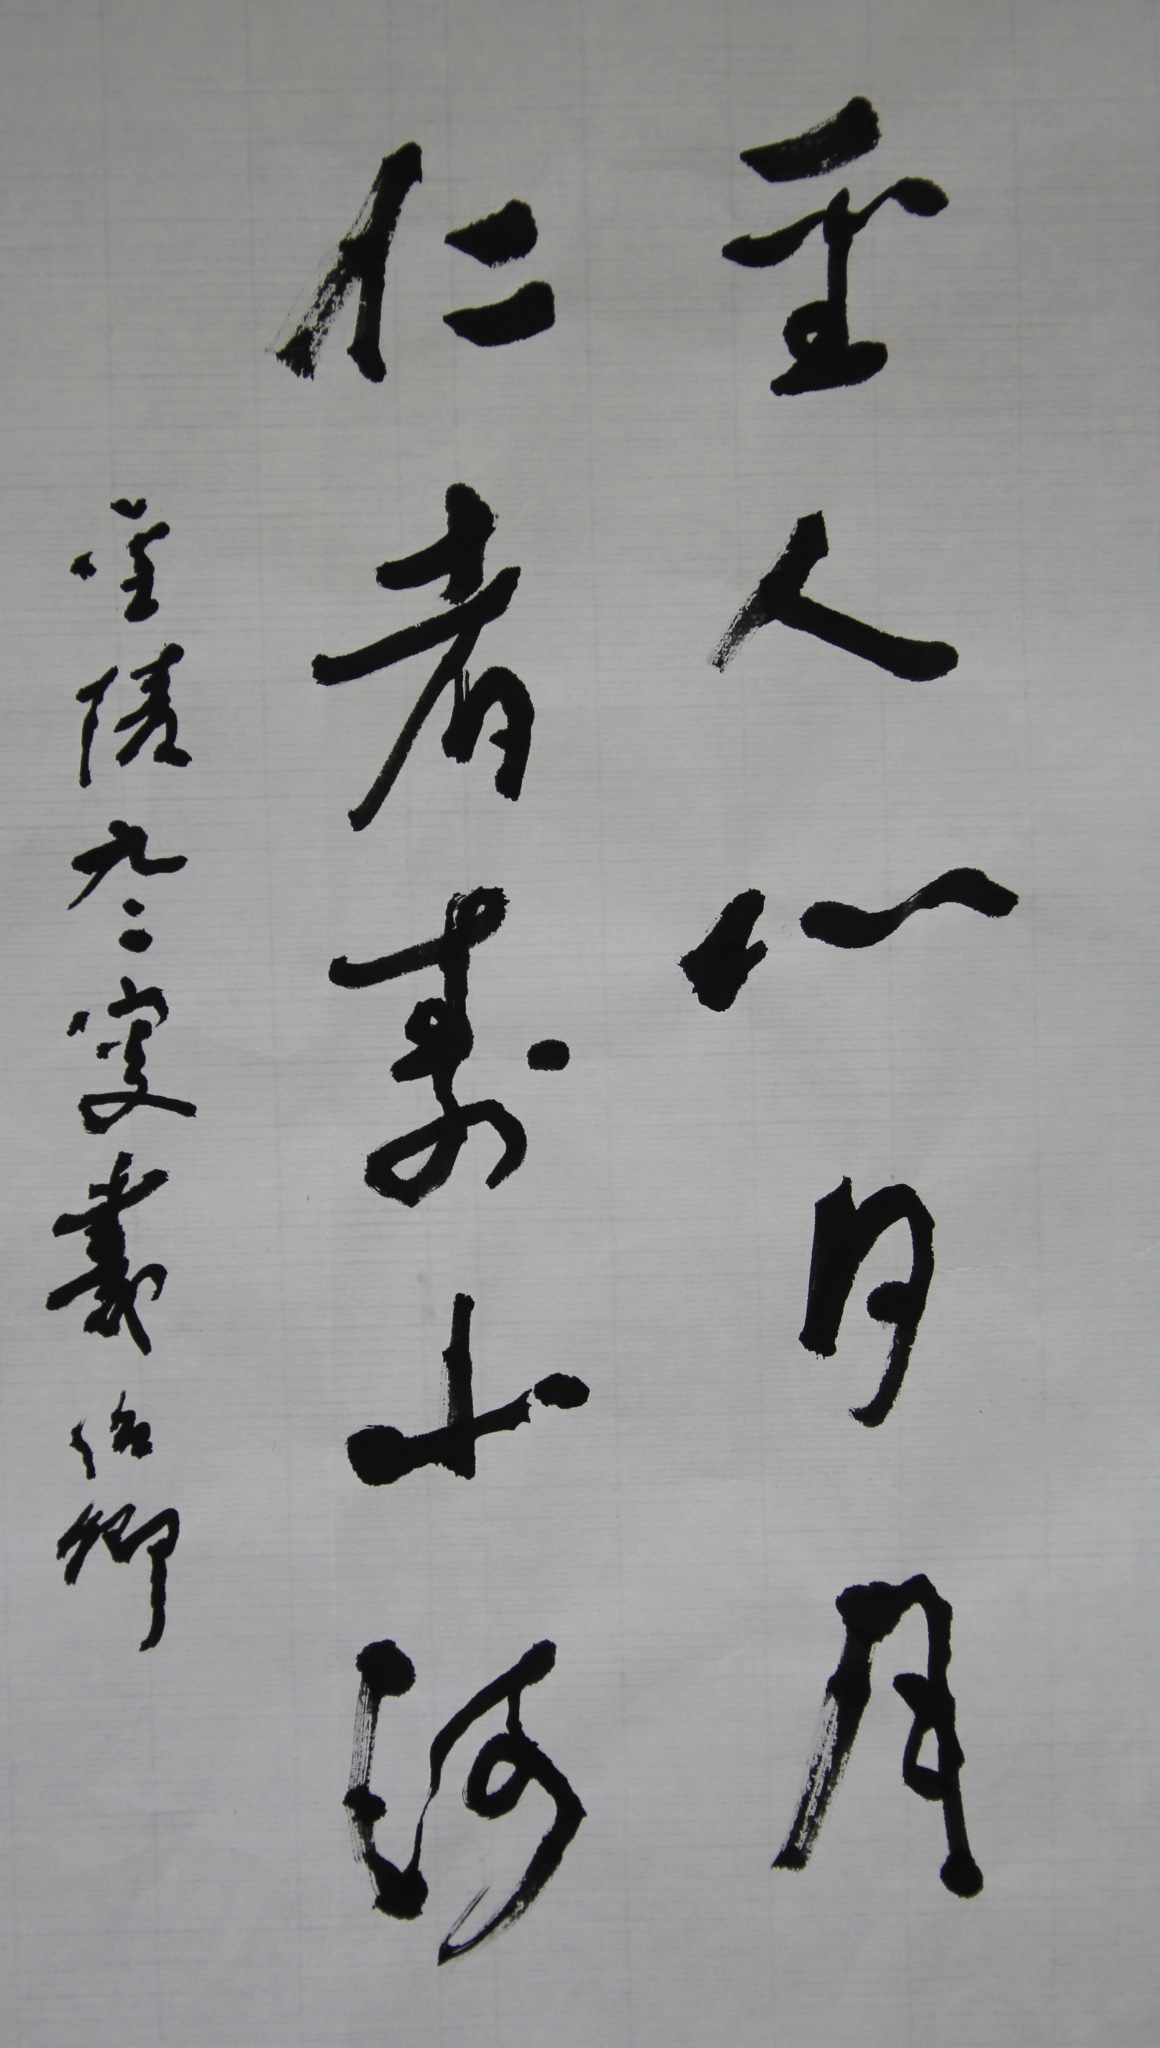 至人心日月
仁者寿山河
金陵九二叟戴卿